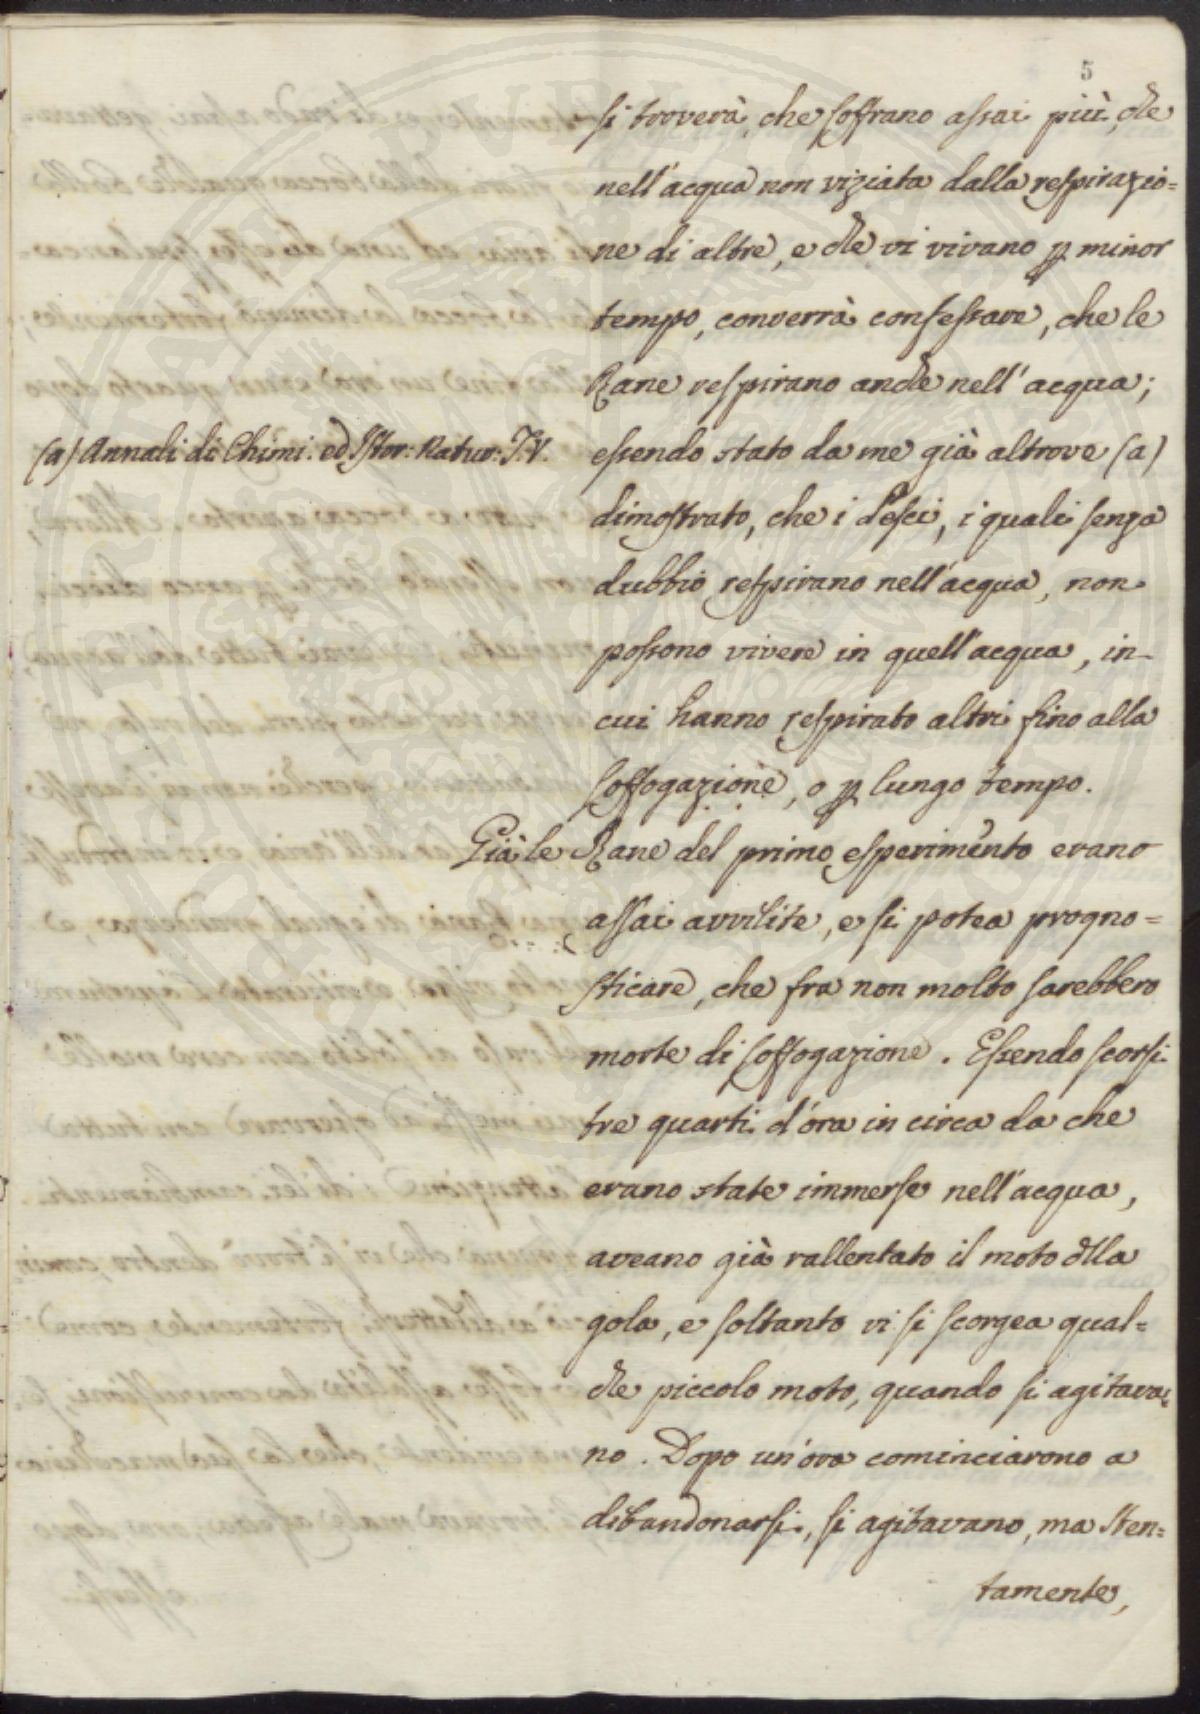 5
si troverà, che soffrano assai più, che
nell'acqua non viziata dalla respirazio=
ne di altre, e che vi vivano p minor
tempo, converrà confessare, che le
Rane respirano anche nell'acqua;
(a) Annali di Chimi. ed Istor: Natur: T. V.
essendo stato da me già altrove (a)
dimostrato, che i Pesci, i quali senza
dubbio respirano nell'acqua, non
possono vivere in quell'acqua, in
cui hanno respirato altri fino alla
soffogazione, o p lungo tempo.
Già le Rane del primo esperimento erano
assai avvilite, e si potea progno=
sticare, che fra non molto sarebbero
morte di soffogazione. Essendo scorsi
tre quarti d'ora in circa da che
erano state immerse nell'acqua,
aveano già rallentato il moto dlla
gola, e soltanto vi si scorgea qual=
che piccolo moto, quando si agitava=
no. Dopo un'ora cominciarono a
dibandonarsi, si agitavano, ma sten=
tamente,